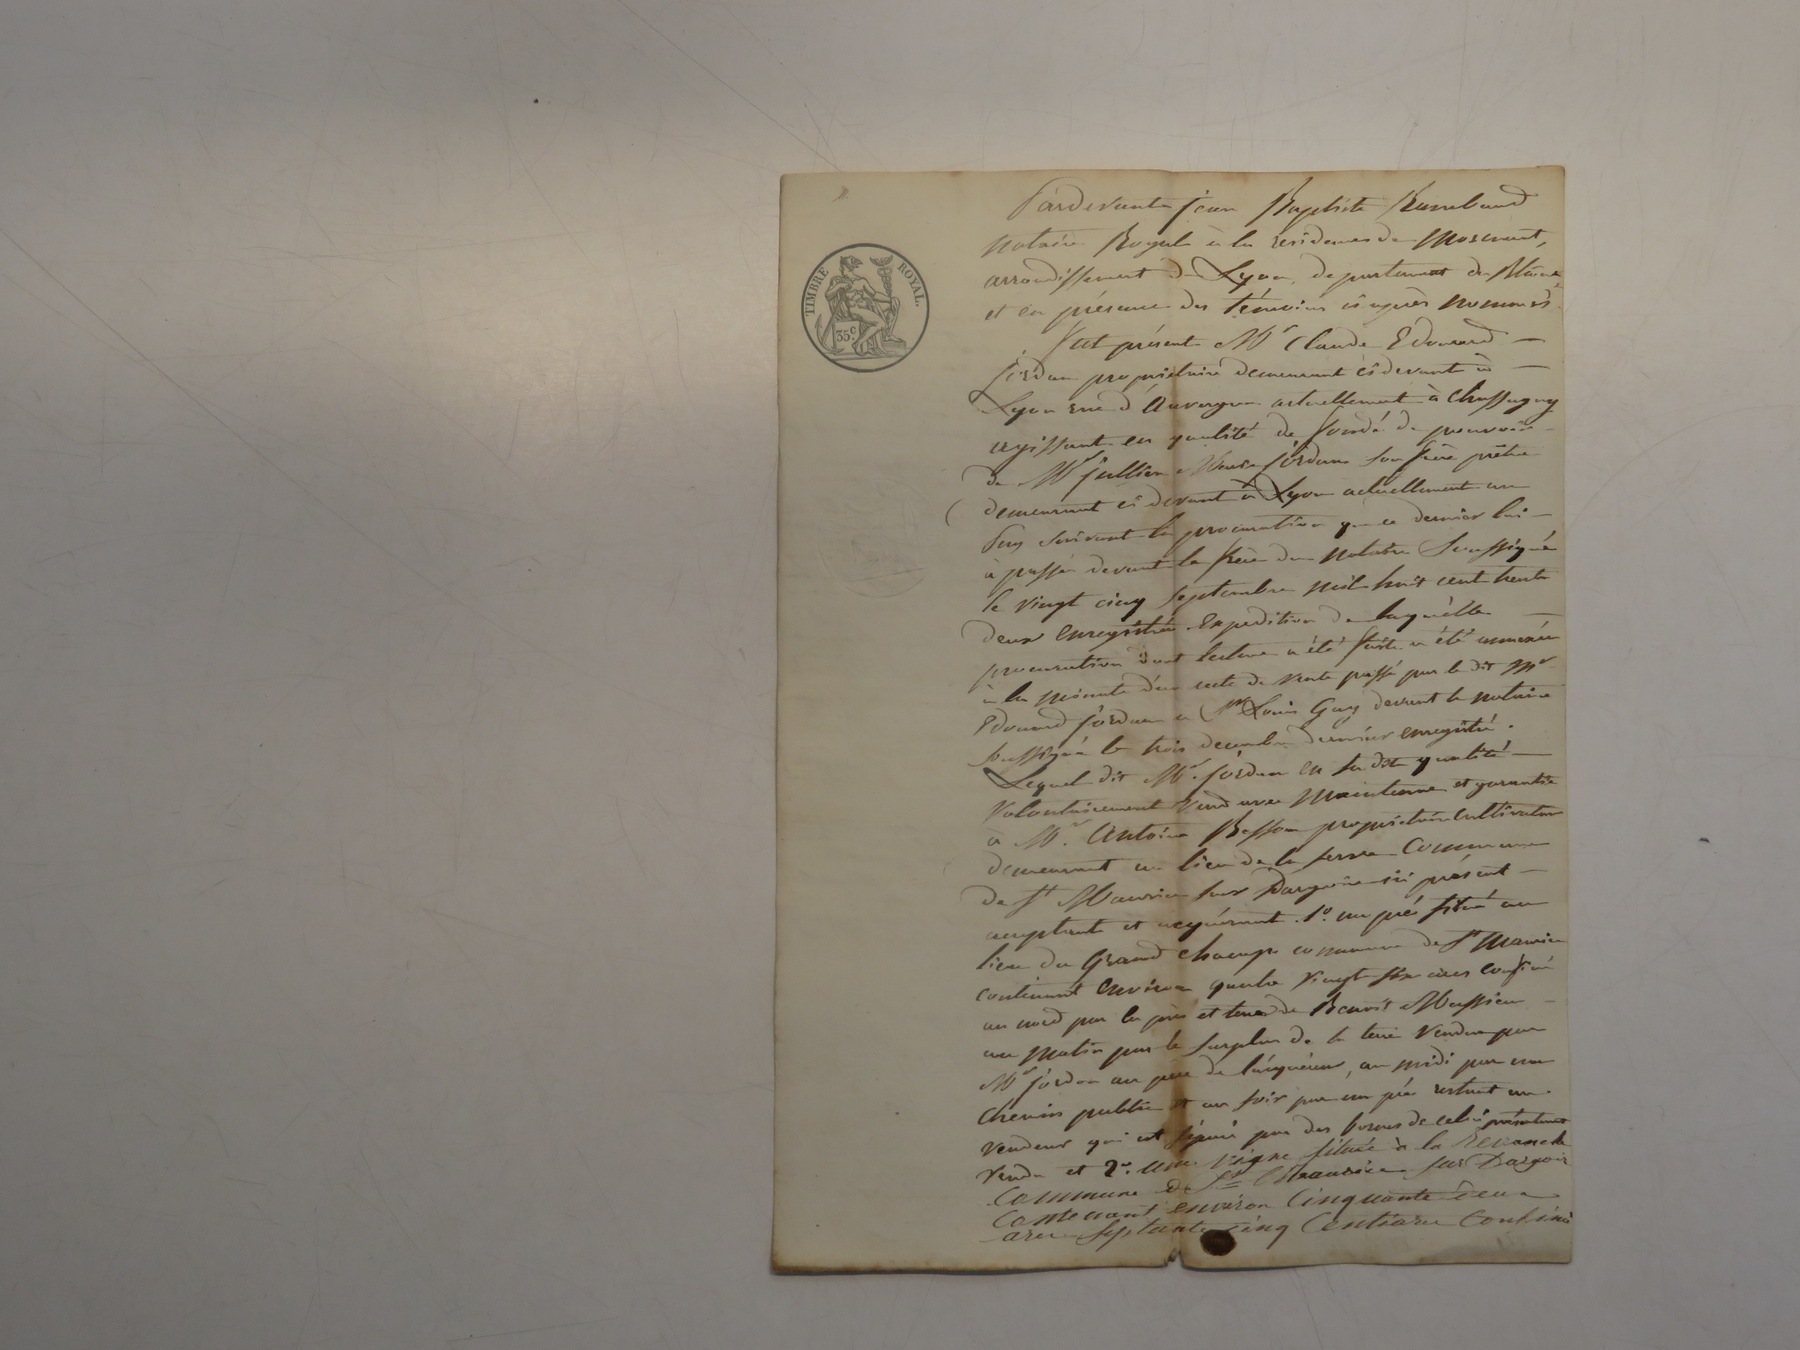 TIMBRE ROYAL.
35 c
Pardevant Jean Baptiste
Notaire Royal à la résidence de Mornant,
arrondissement de Lyon, département du Rhône
et en présence des témoins ci après nommés.
Fut présent Mr Claude Edouard —
Jordan propriétaire demeurant ci devant à —
Lyon rue d'Auvergne actuellement à Chassagny
agissant en qualité de fondé de pouvoir
de Mr Jullien Jordan son frère prêtre
demeurant ci devant à Lyon actuellement au
Puy suivant la procuration que ce dernier lui —
à passé devant le frère du notaire soussigné
le vingt cinq septembre mil huit cent trente
deux enregistrée. Expédition de laquelle —
procuration dont lecture a été faite a été annexée
à la minute d'un acte de vente passé par le dit Mr
Edouard Jordan à Mr Louis Guy devant le notaire
soussigné le trois décembre dernier enregistré.
Lequel dit Mr. Jordan en sa dite qualité —
Volontairement Vend avec Maintenue et garantie
à Mr. Antoine Besson propriétaire Cultivateur
demeurant au lieu de la Commune
de St Maurice sur Dargoire ici présent —
acceptant et acquérant. 1o. un pré situé au
lieu du Grand Champ commune de St Maurice
contenant environ quatre vingt six ares confiné
au nord par les prés et terre de Benoit Massieu —
au matin par le surplus de la terre vendue par
Mr Jordan au père de l'acquéreur, au midi par un
Chemin public et au soir par un pré restant au
vendeur qui est séparé par des bornes de celui présentement
vendu et 2o. une vigne située à la Revanche
Commune de St Maurice sur Dargoire
Contenant environ Cinquante deux
ares septante cinq Centiares Confiné